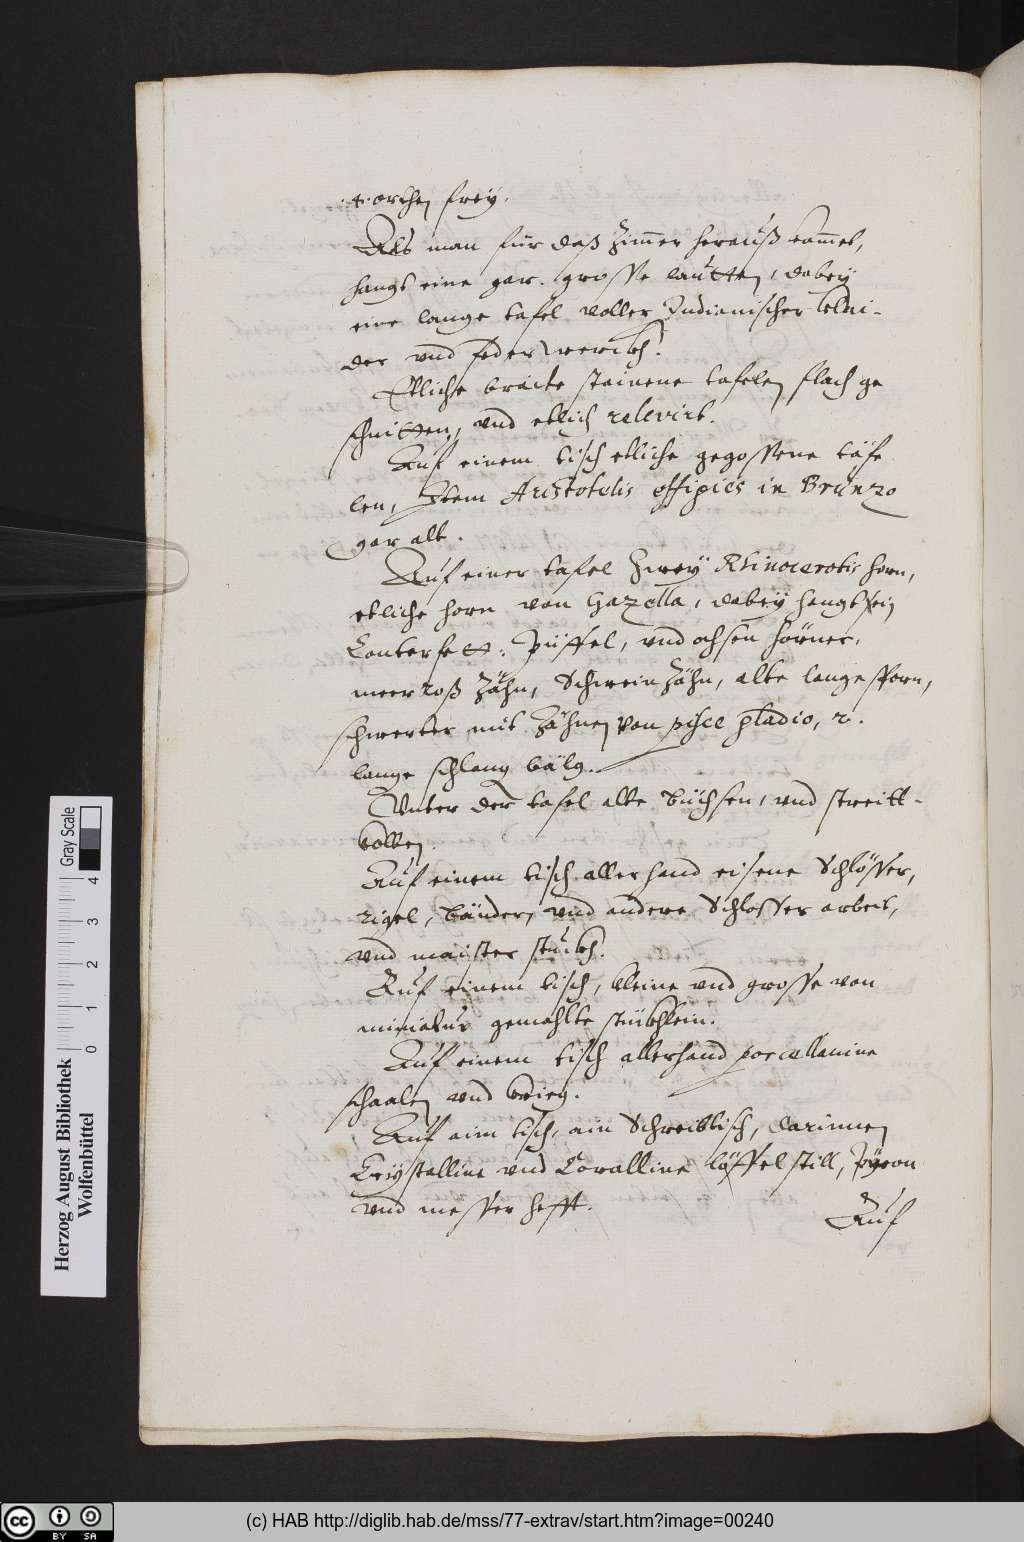 .4. orthen frey.
Als man für daß Zimmer herauß kommet,
hangt eine gar. grosse lautten, dabey
eine lange tafel voller Indianischer klai-
der vnd federwerckh.
Etliche braite stainene tafelen flach ge
schnitten, vnd etlich relevirt.
Auf einem tisch etliche gegossene täfe
len, Item Aristotelis effigies in Brunzo
gar alt.
Auf einer tafel Zwey Rhinocerotis horn,
etliche horn von Gazella, dabey hangt sein
Conterfett. Püffel, vnd ochsen hörner,
meer roß Zähn, Schwein Zähn, alte lange sporn,
schwerter mit Zähnen von pisce gladio, 2.
lange schlang bälg.
Vnter der tafel alte büchsen, vnd streitt-
kolben.
Auf einem tisch allerhand eisene Schlösser,
rigel, bänder, vnd andere Schlosser arbeit,
vnd maister stuckh.
Auf einem tisch, kleine vnd grosse von
miniatur gemahlte stückhlein.
Auf einem tisch allerhand porcellanine
schaalen vnd krieg.
Auf aim tisch, ain Schreibtisch, darinnen
Cristalline vnd Coralline löffel still,
vnd messer hefft.
Auf
Herzog August Bibliothek
Wolfenbüttel
0 1 2 3 4
Gray Scale
cc BY SA
(c) HAB http://diglib.hab.de/mss/77-extrav/start.htm?image=00240